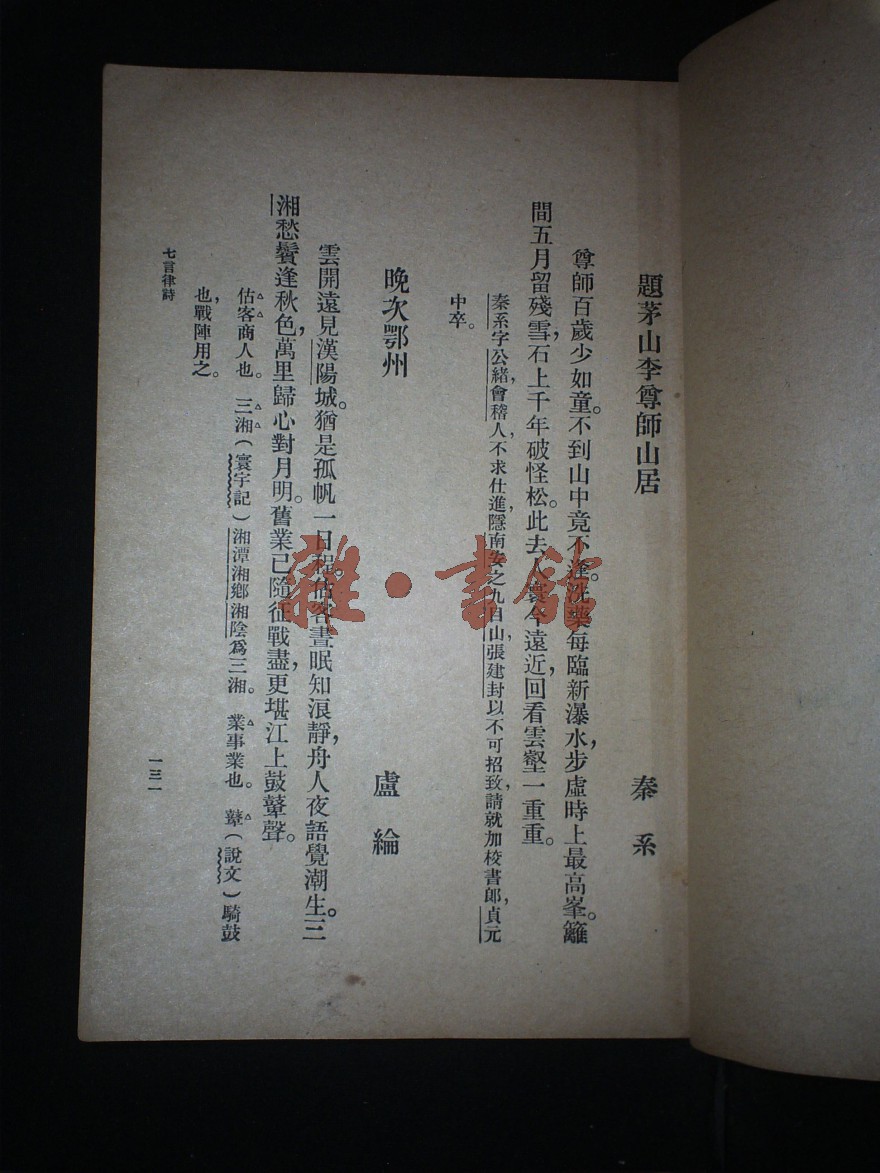 題茅山李尊師山居　秦系
尊師百歲少如童。不到山中竟不逢。洗藥每臨新瀑水，步虛時上最高峯。籬
間五月留殘雪，石上千年破怪松。此去人寰今遠近，回看雲壑一重重。
秦系字公緒，會稽人，不求仕進，隱南安之九日山，張建封以不可招致，請就加校書郎，貞元
中卒。
晚次鄂州　盧綸
雲開遠見漢陽城。猶是孤帆一日程。估客晝眠知浪靜，舟人夜語覺潮生。三
湘愁鬢逢秋色，萬里歸心對月明。舊業已隨征戰盡，更堪江上鼓鼙聲。
估客商人也。　三湘（寰宇記）湘潭湘鄉湘陰爲三湘。　業事業也。　鼙（說文）騎鼓
也，戰陣用之。
七言律詩　一三一
雜·書館